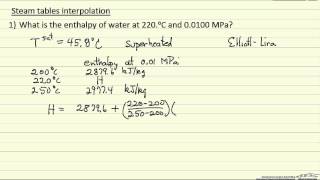 Steam tables interpolation
1) What is the enthalpy of water at 220.°C and 0.0100 MPa?
T^sat = 45.8°C superheated Elliott-Lira
enthalpy at 0.01 MPa
200°C 2879.6 kJ/kg
220°C H
250°C 2977.4 kJ/kg
H = 2879.6 + (220-200/250-200)(